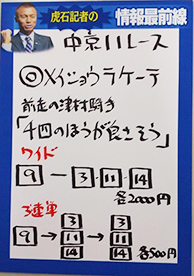 虎石記者の
情報最前線
中京11レース
◎メイショウラケーテ
前走の津村騎手
「千四のほうが良さそう」
ワイド
9 ー 3・11・14
各2000円
3連単
9→3 11 14→3 11 14
各500円